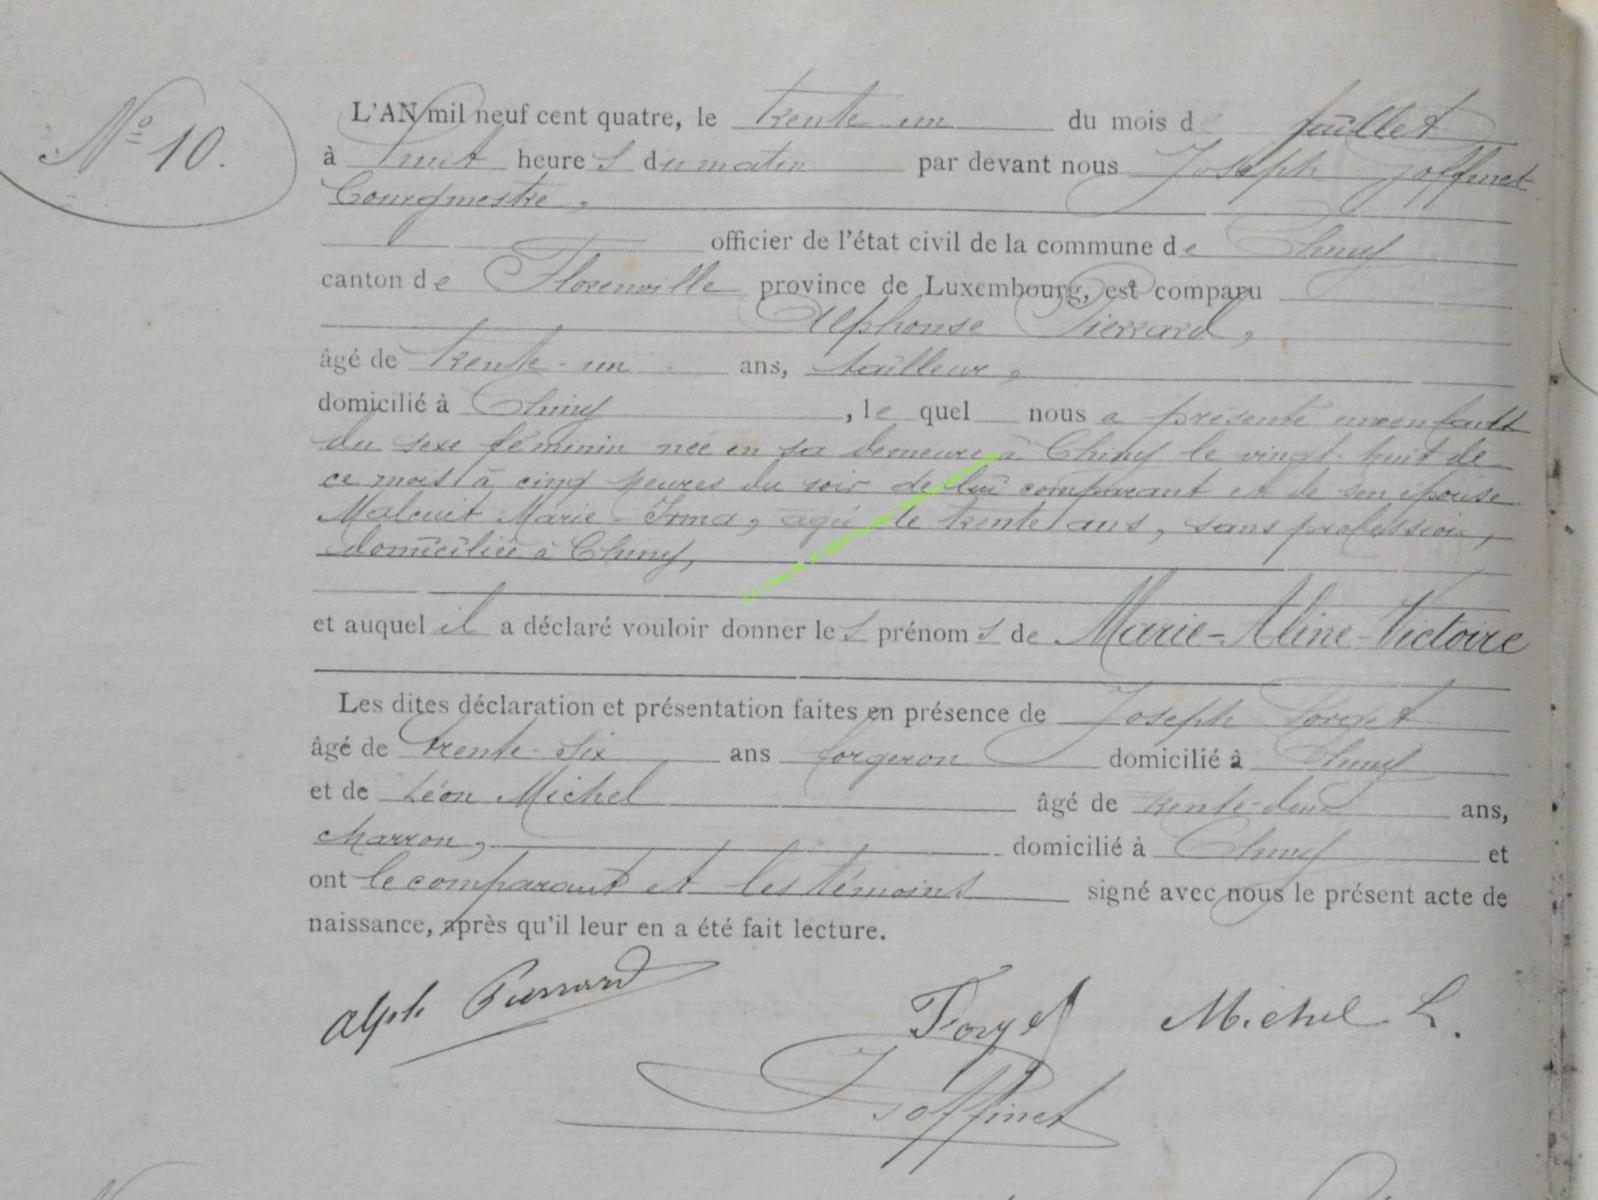 N° 10.
L'AN mil neuf cent quatre, le trente un du mois de Juillet
à huit heures du matin par devant nous Joseph Joffinet
Bourgmestre,
officier de l'état civil de la commune de Chiny
canton de Florenville province de Luxembourg, est comparu
Alphonse Pierrard,
âgé de trente-un ans, tailleur,
domicilié à Chiny, lequel nous a présenté un enfant
du sexe féminin née en sa demeure à Chiny le vingt-huit de
ce mois à cinq heures du soir de lui comparant et de son épouse
Malcuit Marie-Irma, agée de trente ans, sans profession,
domiciliée à Chiny,
et auquel il a déclaré vouloir donner les prénoms de Marie-Aline-Victoire
Les dites déclaration et présentation faites en présence de Joseph Forget
âgé de trente-six ans forgeron domicilié à Chiny
et de Léon Michel âgé de trente-deux ans,
charron, domicilié à Chiny et
ont le comparant et les témoins signé avec nous le présent acte de
naissance, après qu'il leur en a été fait lecture.
Alph Pierrard Forget Michel L.
Joffinet